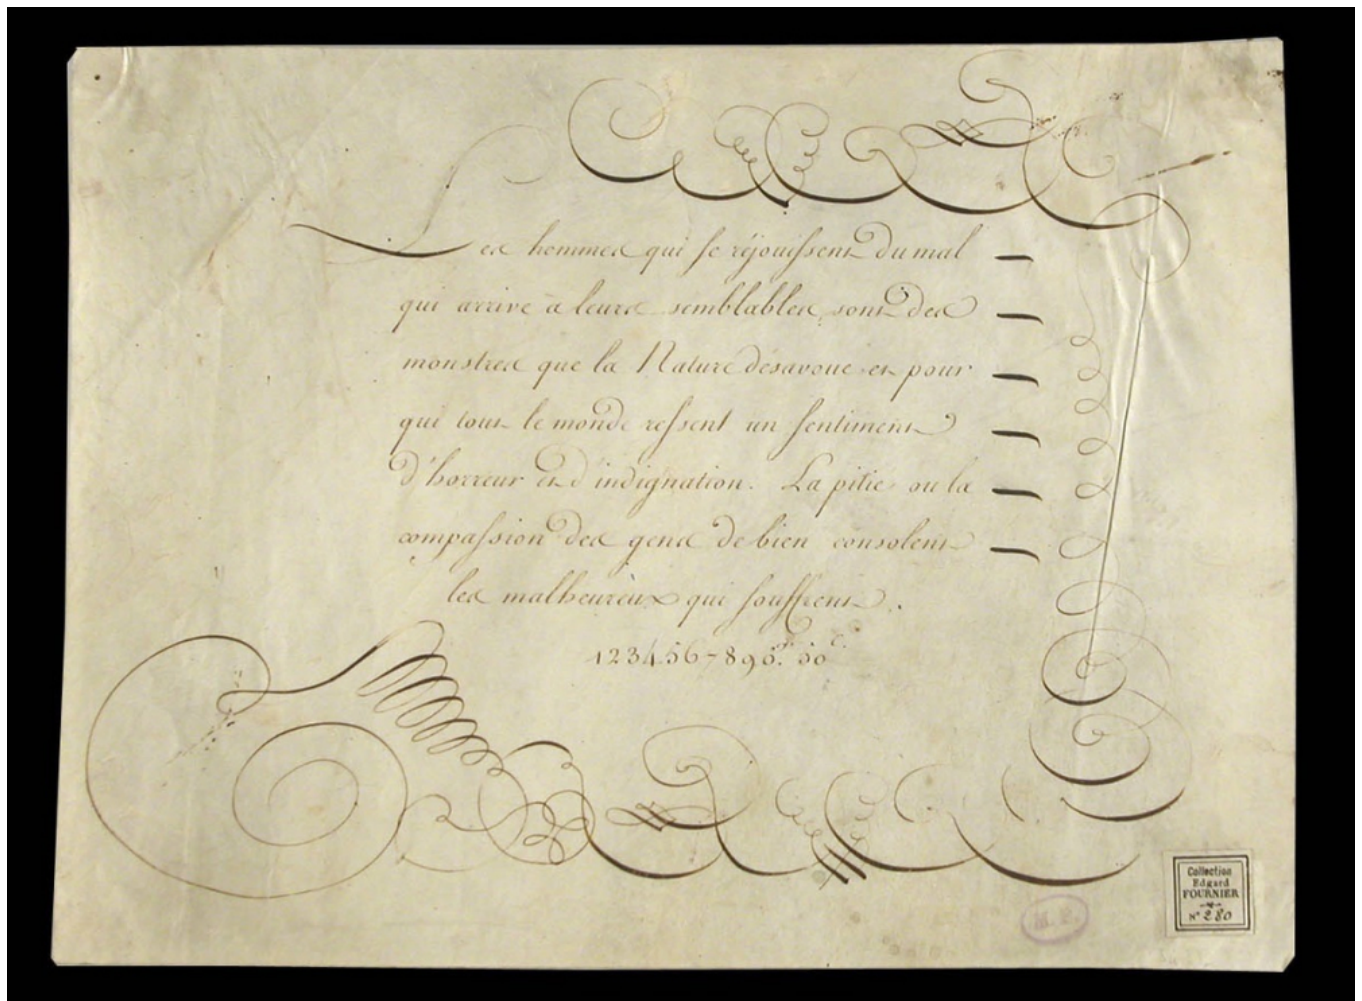 Les hommes qui se réjouissent du mal
qui arrive à leurs semblables, sont des
monstres que la Nature désavoue et pour
qui tout le monde ressent un sentiment
d'horreur et d'indignation. La pitié ou la
compassion des gens de bien consolent
les malheureux qui souffrent.
1234567890.
Collection
Edgard
FOURNIER
N° 280
M. P.